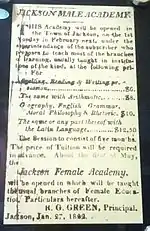 JACKSON MALE ACADEMY.
THIS Academy will be opened in
the Town of Jackson, on the 1st
Monday in February next, under the
superintendence of the subscriber who
proposes to teach most of the branches of
learning, usually taught in institu-
tions of the kind, at the following pri-
ces. For
Spelling, Reading & Writing per
session, $6.
The same with Arithmetic, $8.
Geography, English Grammar,
Moral Philosophy & Rhetoric, $10.
The same or any part thereof with
the Latin Language, $12,50
The Session to consist of five months.
The price of Tuition will be required
in advance. About the first of May,
the
Jackson Female Academy,
will be opened in which will be taught
the several branches of Female Educa-
tion. Particulars hereafter.
H. G. GREEN, Principal.
Jackson, Jan.